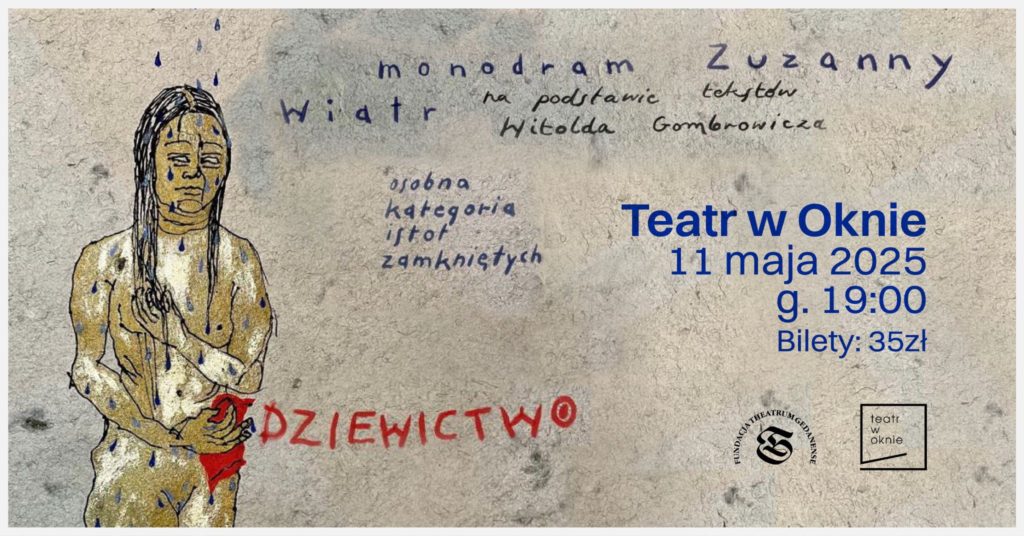 monodram Zuzanny
Wiatr na podstawie tekstów
Witolda Gombrowicza
osobna
kategoria
istot
zamkniętych
DZIEWICTWO
Teatr w Oknie
11 maja 2025
g. 19:00
Bilety: 35zł
FUNDACJA THEATRUM GEDANENSE
teatr
w
oknie